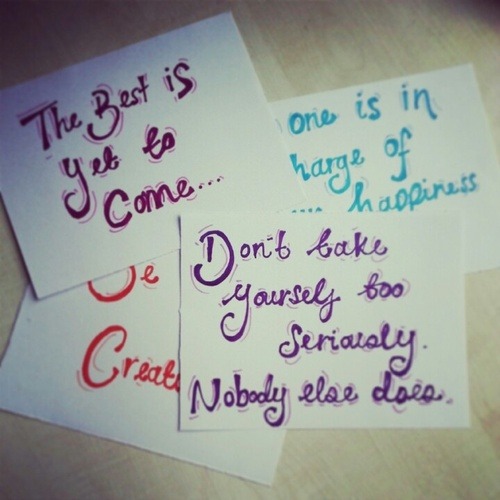 The Best is
Yet to
Come...
one is in
harge of
happiness
Be
Creat
Don't take
yourself too
Seriously.
Nobody else does.